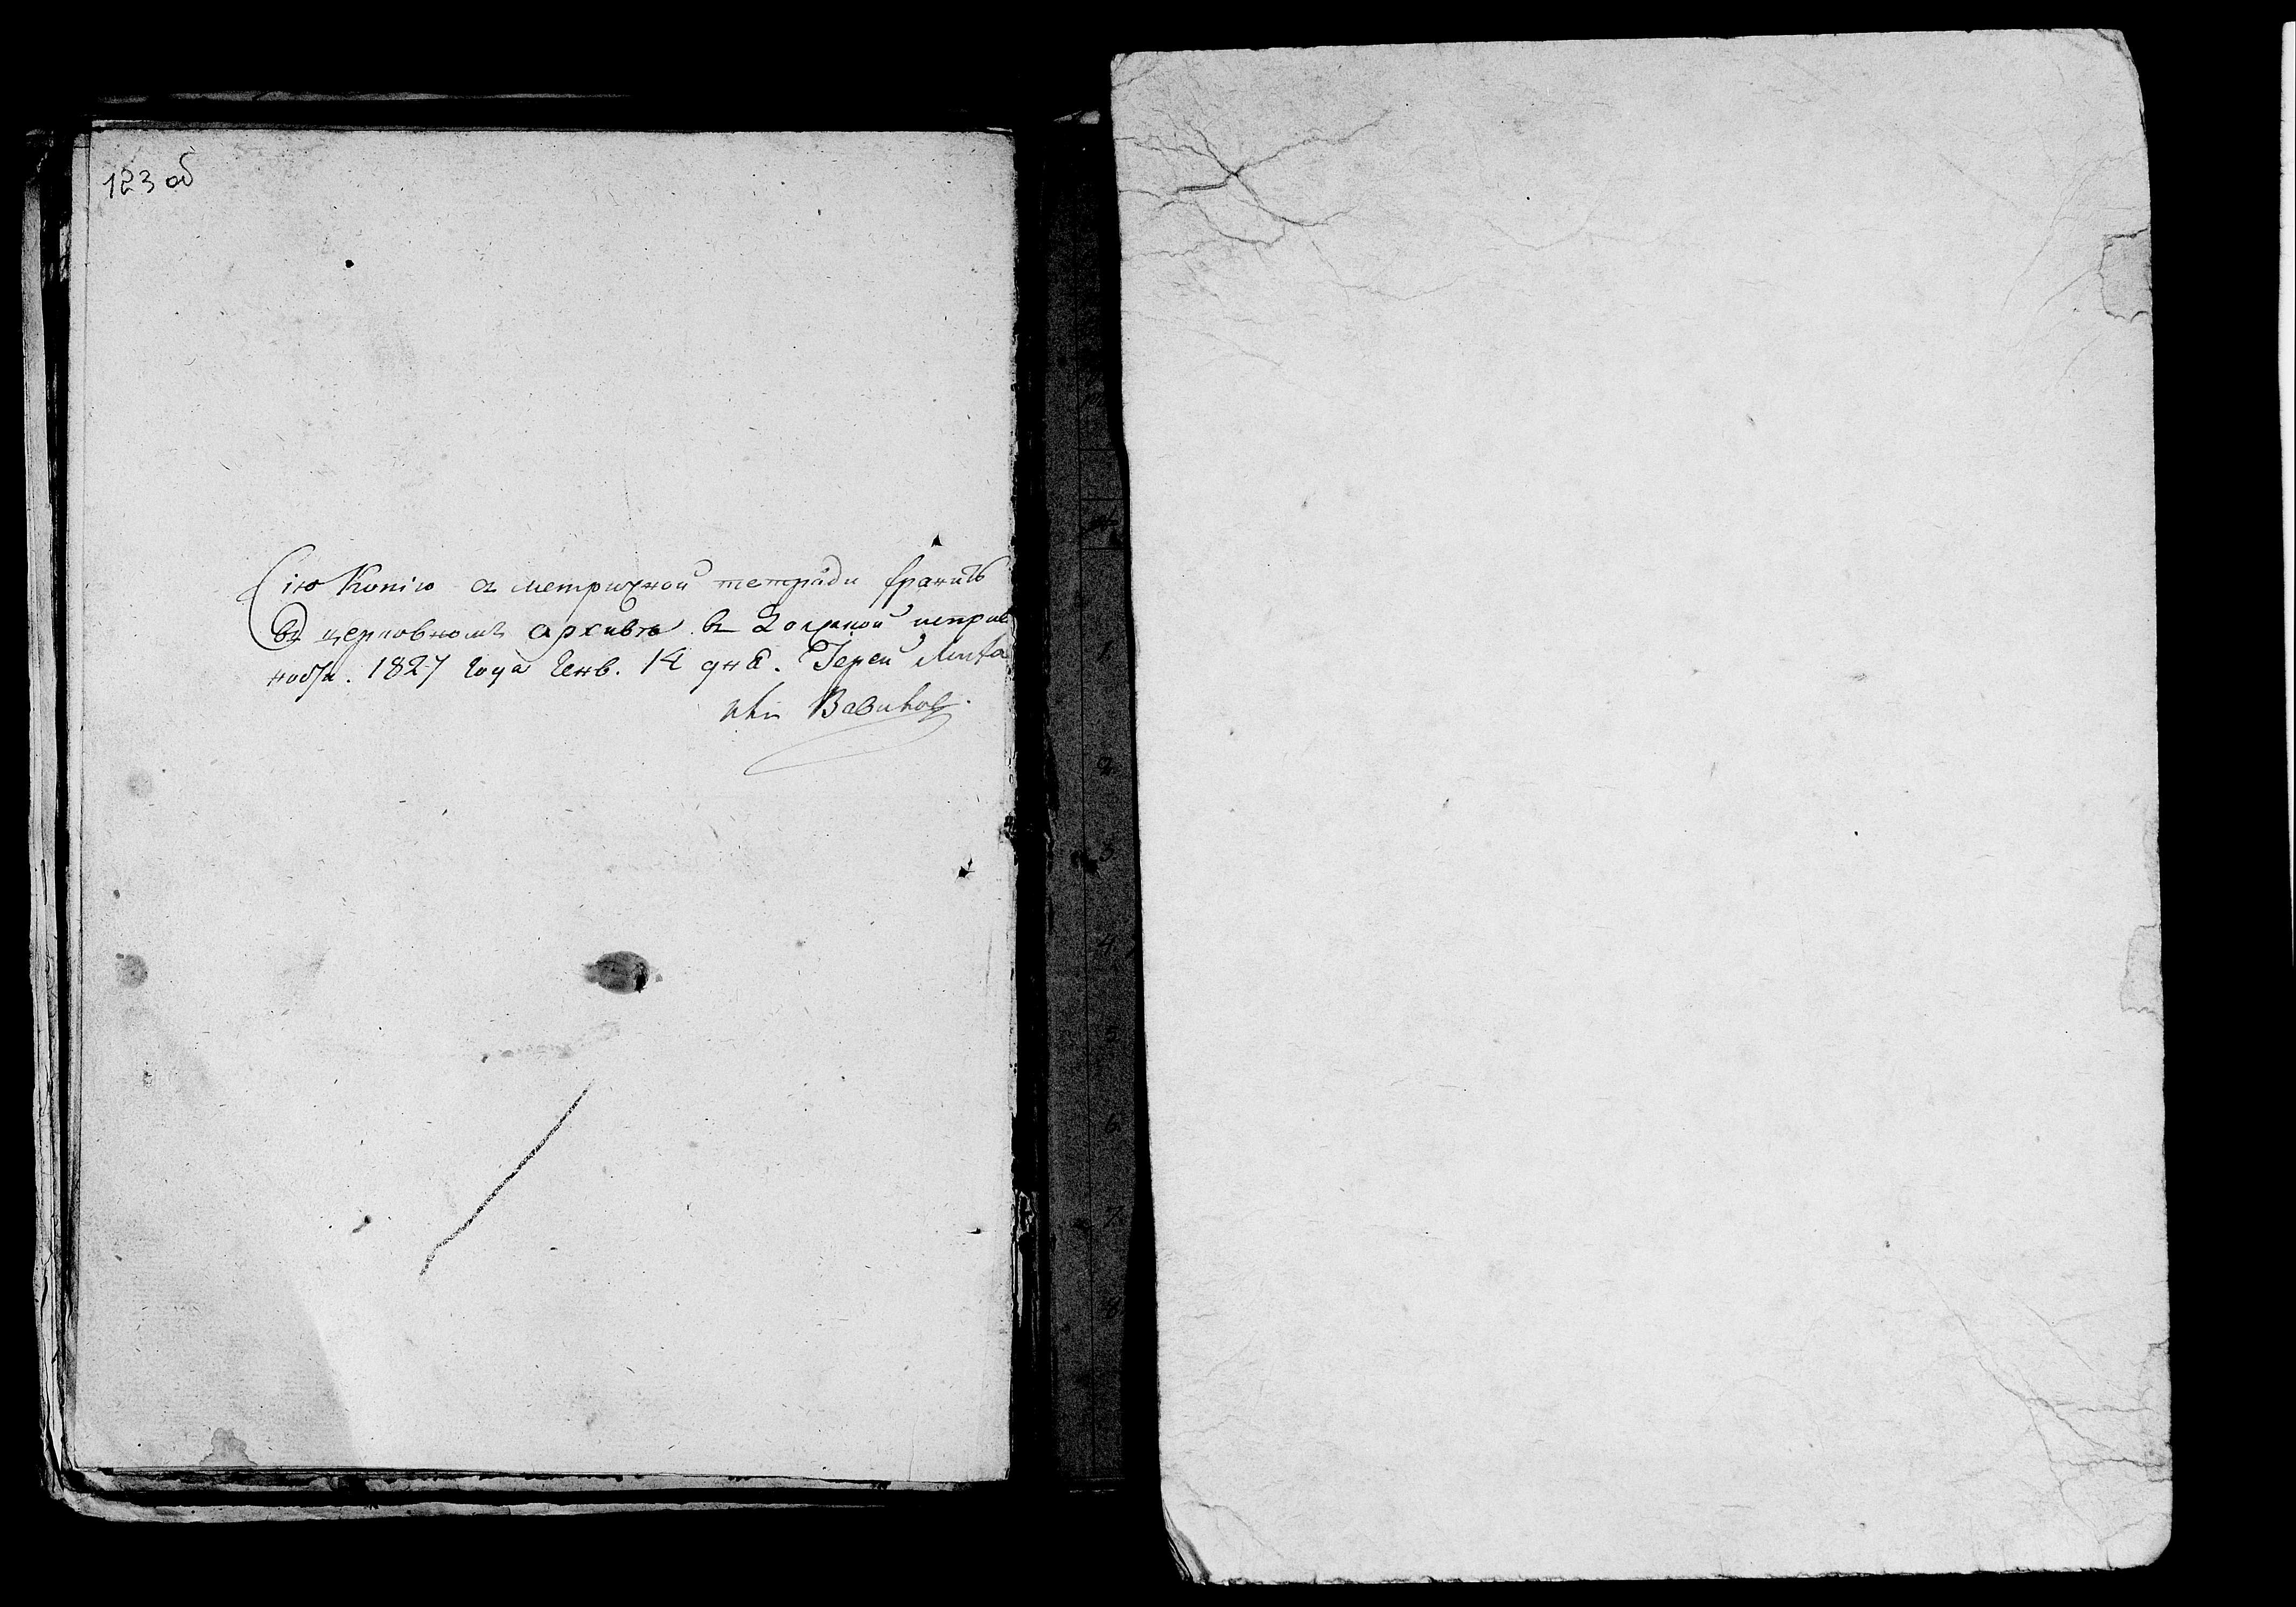 123 об
Сію Копію съ метрической тетради хранить
въ церковномъ архивѣ въ должной исправ
ности. 1827 года Генв. 14 дня. Іерей Миха
илъ Вавиловъ.
1
2
3
4
5
6
7
8